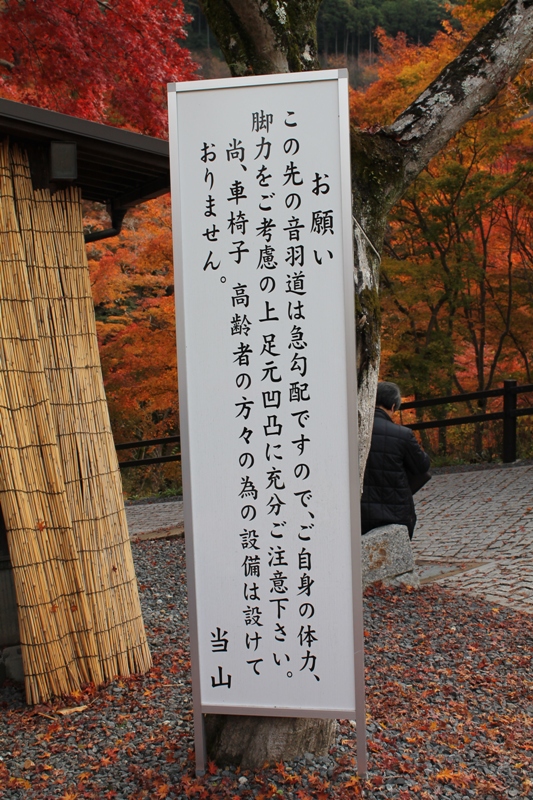 お願い
この先の音羽道は急勾配ですので、ご自身の体力、
脚力をご考慮の上足元凹凸に充分ご注意下さい。
尚、車椅子 高齢者の方々の為の設備は設けて
おりません。
当山